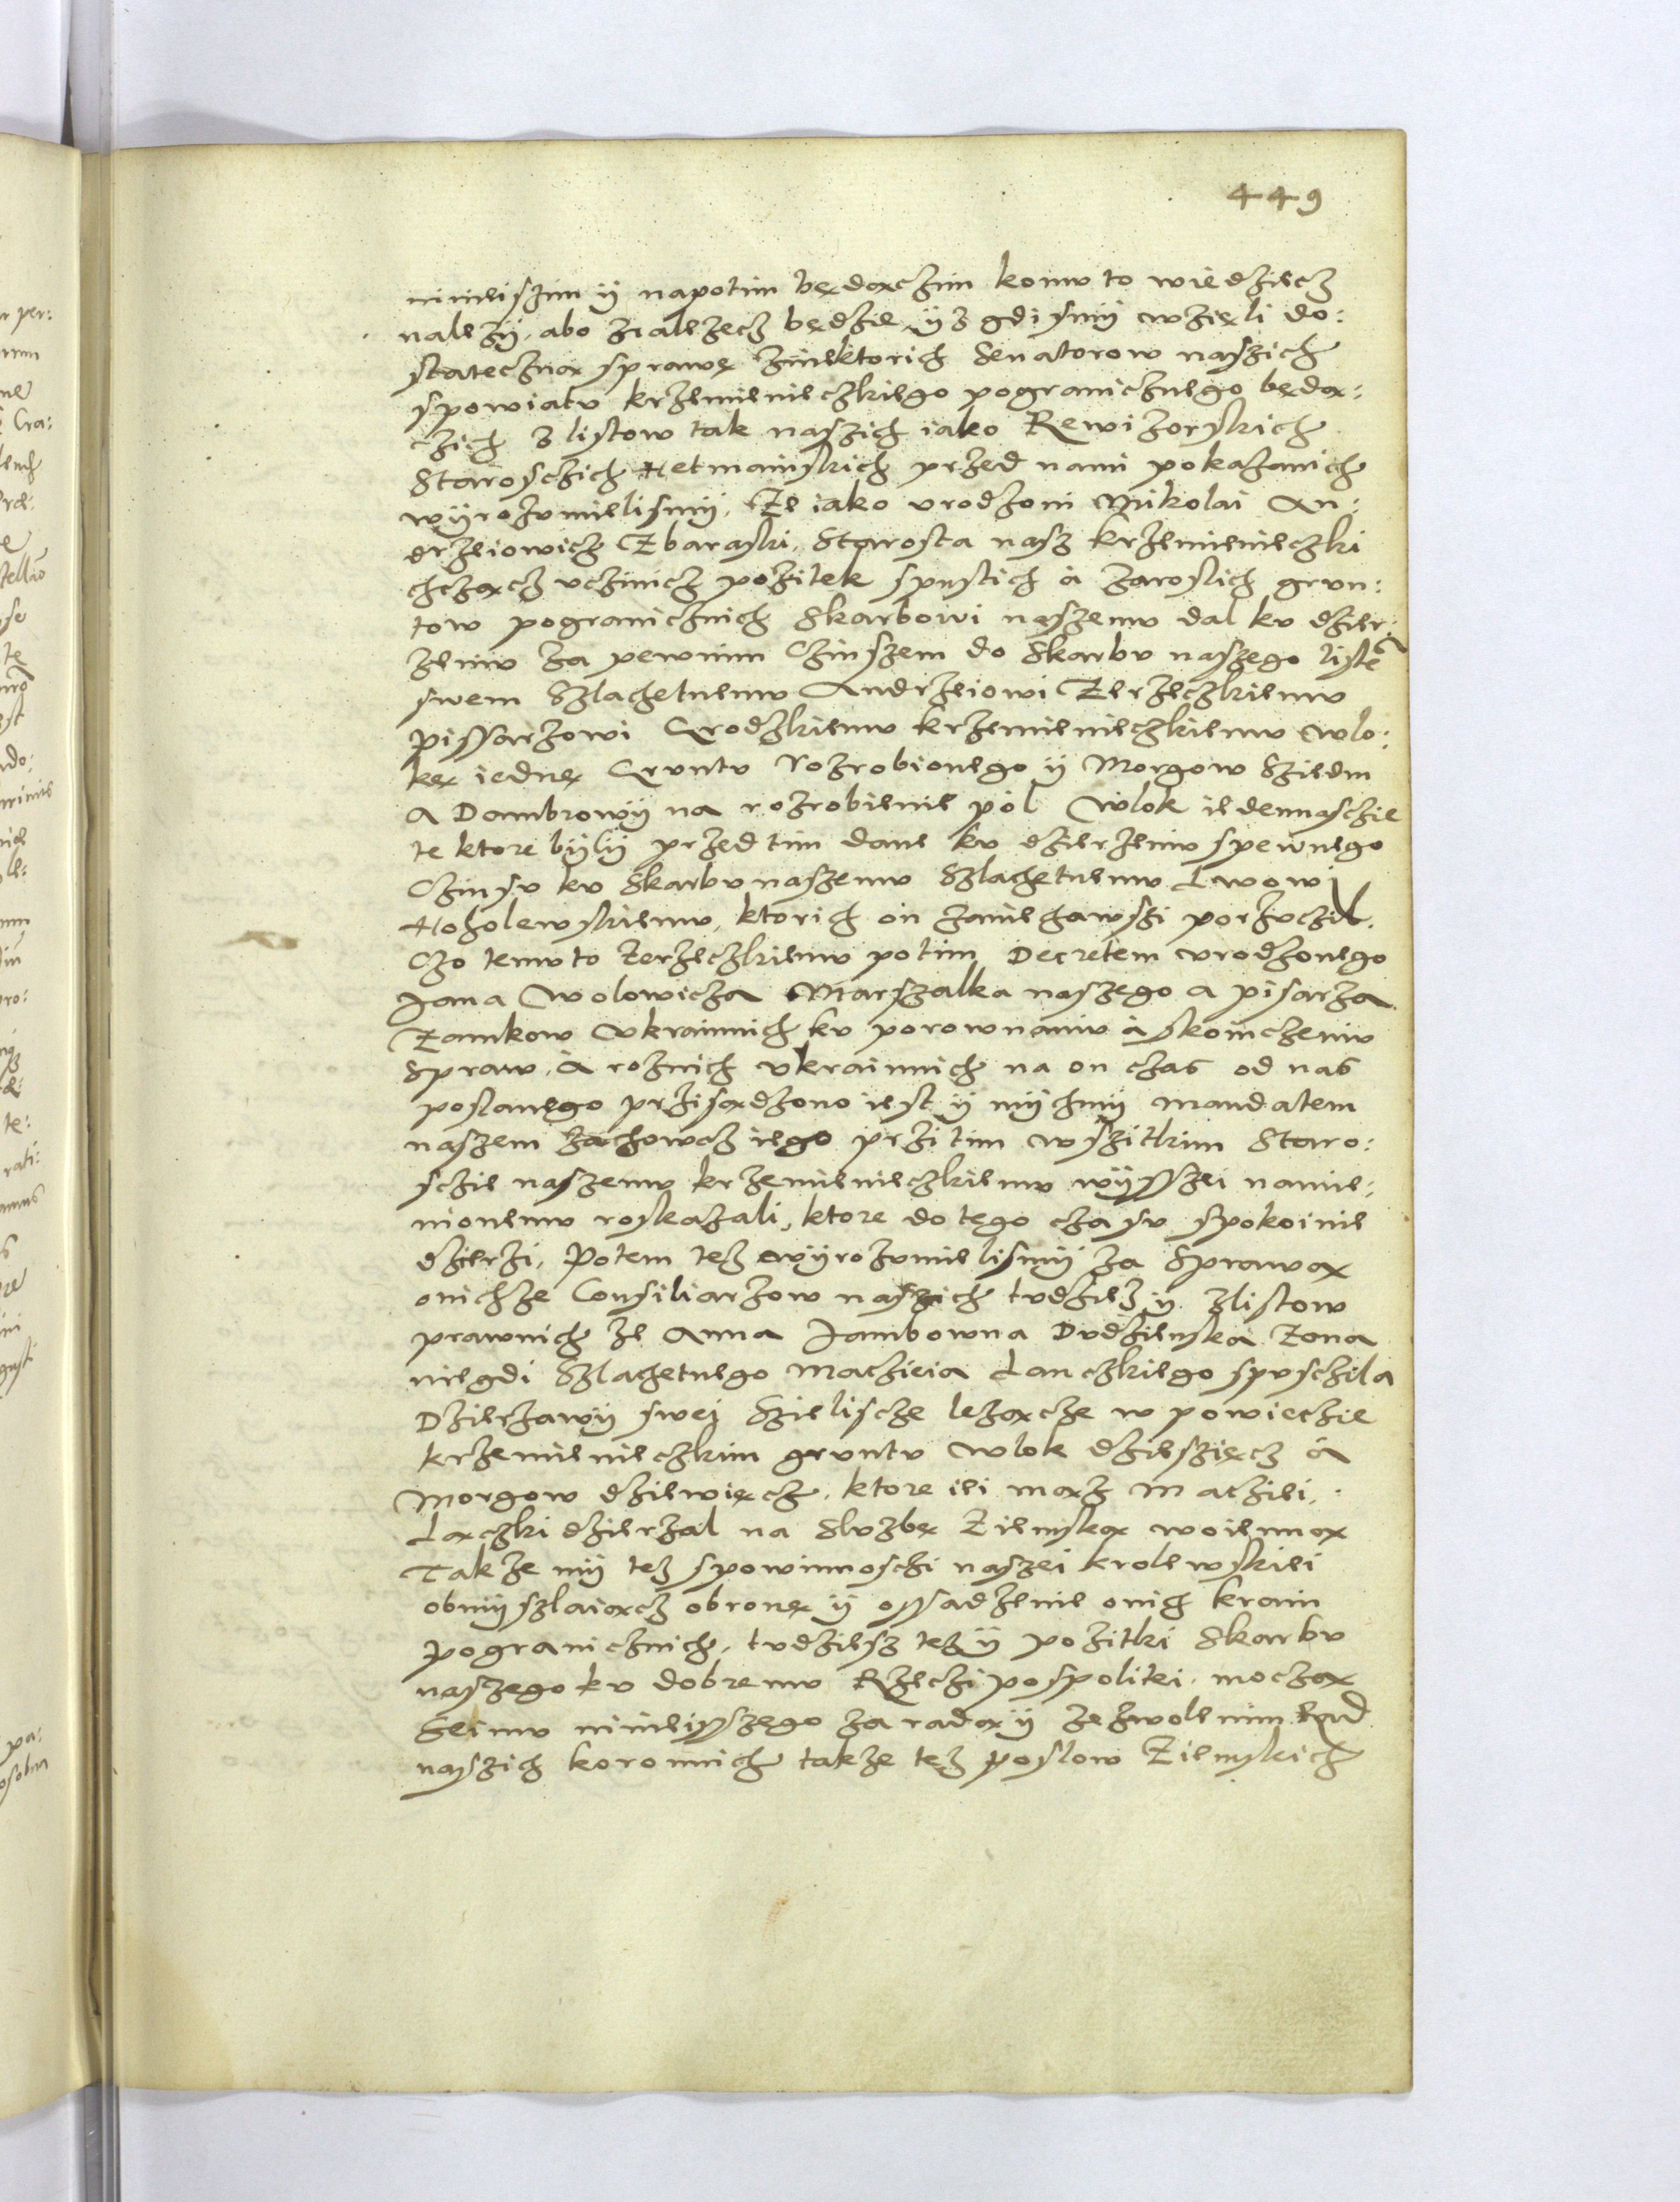 449
ninieiszim ÿ napotim będącżim komu to wiedżiecz
należÿ, abo należecz będżie, ÿż gdismÿ wżięli do:
statecżną sprawę żniektorich Senatorow naszich
spowiatu krżemienieczkiego pogranicżnego będą:
cżich z listow tak naszich iako Rewiżorskich
Staroscżich Hetmainskich przed nami pokażanich
wÿrożumielismÿ, Że iako urodżoni Mikolai An:
drżeiowicz Zbaraski, Starosta nasz krżemienieczki
chcżącz ucżinicz pożitek spustich á żaroslich grun:
tow pogranicżnich Skarbowi naszemu dal ku dżier:
żeniu żа pewnim Cżinszem do Skarbu naszego listē
swem Szlachetnemu Andrżeiowi Zerżeczkiemu
pissarżowi Grodżkiemu krżemienieczkiemu wlo:
kę iednę Gruntu rożrobionego ÿ Morgow Sziedm
A Dambrowÿ na rożrobienie pól Wlok iedennasczie
te ktore bÿlÿ przed tim dane ku dżierżeniu spewnego
Cżinsu ku Skarbu naszemu Szlachetnemu Lwowi
Hoholewskiemu, ktorich ón żaniechawszi porżucżil.
Czo temu to Zerżeczkiemu potim Decretem urodżonego
Jana Wolowicża Marszalka naszego a pisarża
Zamkow Ukrainnich ku porownaniu á skoincżeniu
Spraw, á rożnich ukrainnich na on cżas od nas
poslanego prżisądżono iest ÿ mÿchmÿ mandatem
naszem żachowacz iego prżi tim wszitkim Staro:
scżie naszemu krżemienieczkiemu wÿsszei namie:
nionemu roskażali, ktore do tego cżasu spokoinie
dżierżi, Potem też wÿrożumielismÿ żа Sprawą
onichże Consiliarżow naszich tudżiesz ÿ żlistow
prawnich że Anna Jambowna Dudżienska Żona
niegdi Szlachetnego Macżieia Lanczkiego spuscżila
Dżierżawÿ swej Szieliscże leżącże w powiecżie
krżemienieczkim gruntu wlok dżiesżięcz á
Morgow dżiewięcz, ktore iei mąż Macżiei,
Lączki dżierżal na Slużbę Ziemską woienną
Także mÿ też spowinnoscżi naszei krolewskiei
obmÿszlaiącz obronę ÿ ossadżenie onich krain
pogranicżnich, tudżiesz też ÿ pożitki Skarbu
naszego ku dobremu Rżecżipospolitei, moczą
Seimu ninieisszego żа radą ÿ żeżwolenim Rad
naszich koronnich także też poslow Ziemskich